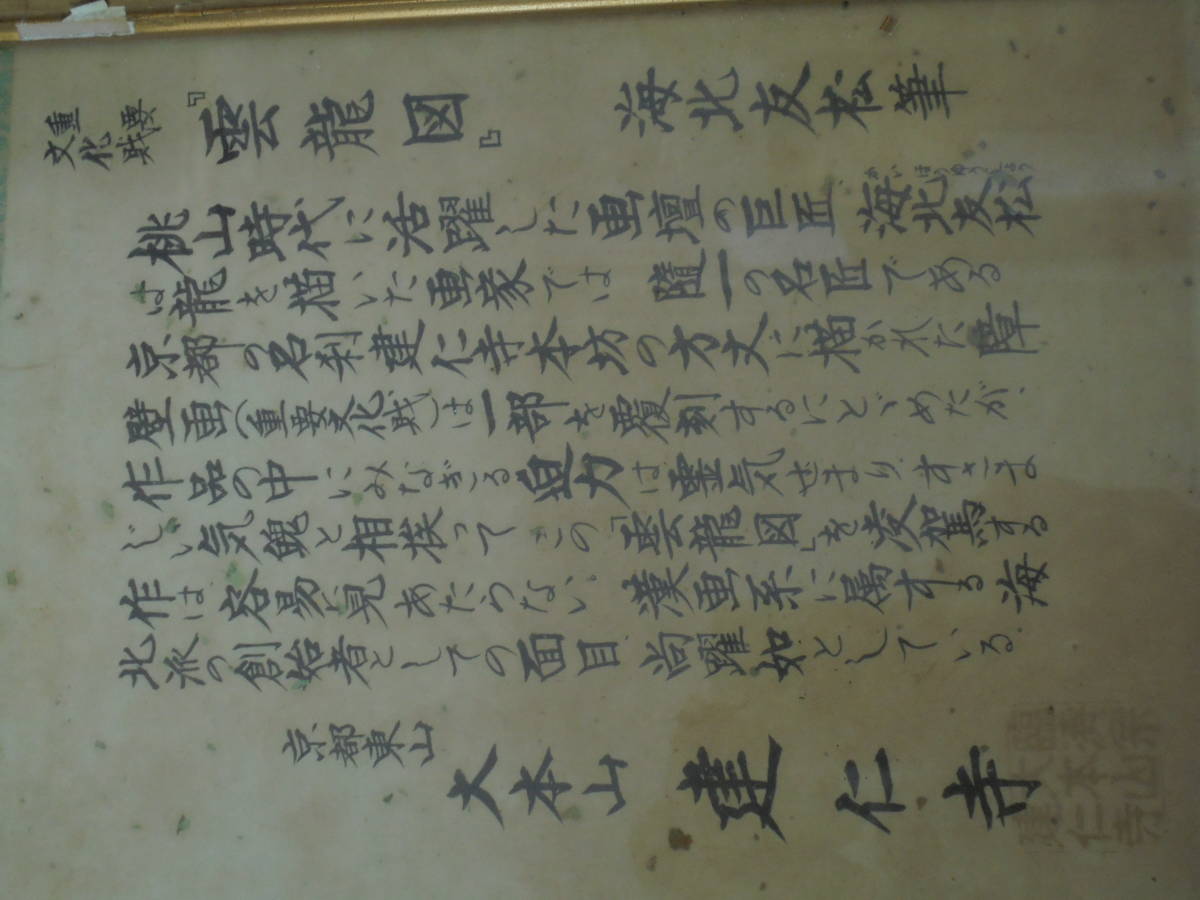 重要文化財『雲龍図』 海北友松筆
桃山時代に活躍した画壇の巨匠 海北友松
かいほうゆうしょう
は龍を描いた画家では 随一の名匠である
京都の名刹建仁寺本坊の方丈に描かれた障
壁画(重要文化財)は一部を覆刻するにとゞめだが、
作品の中にみなぎる迫力は霊気せまりすさま
じい気魄と相挨ってこの「雲龍図」を凌駕する
作は容易に見あたらない、漢画系に属する海
北派の創始者としての面目尚躍如としている
京都東山
大本山 建仁寺
臨済宗
大本山
建仁寺